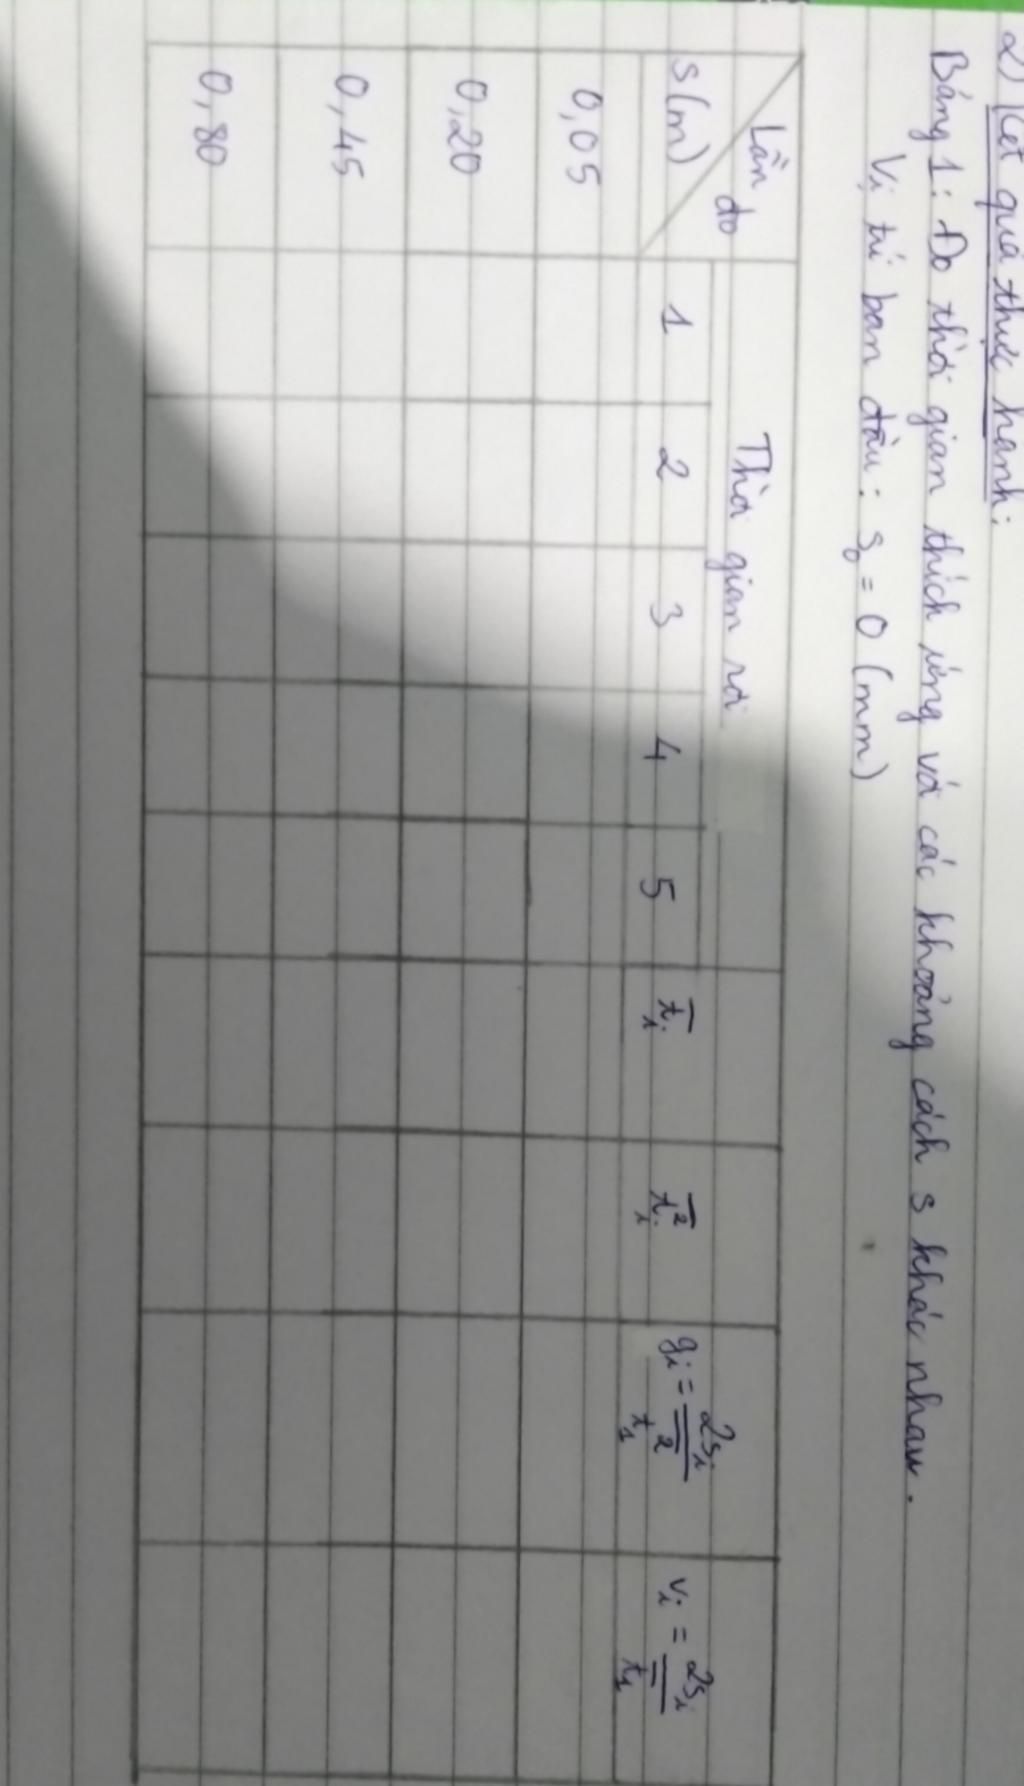 2) Kết quả thực hành:
Bảng 1: Đo thời gian thích ứng với các khoảng cách s khác nhau.
Vị trí ban đầu: s₀ = 0 (mm)
Lần đo
s(m)
Thời gian rơi
1 2 3 4 5 t̅ᵢ t̅ᵢ² gᵢ = 2sᵢ/t̅₁² vᵢ = 2sᵢ/t̅₁
0,05
0,20
0,45
0,80